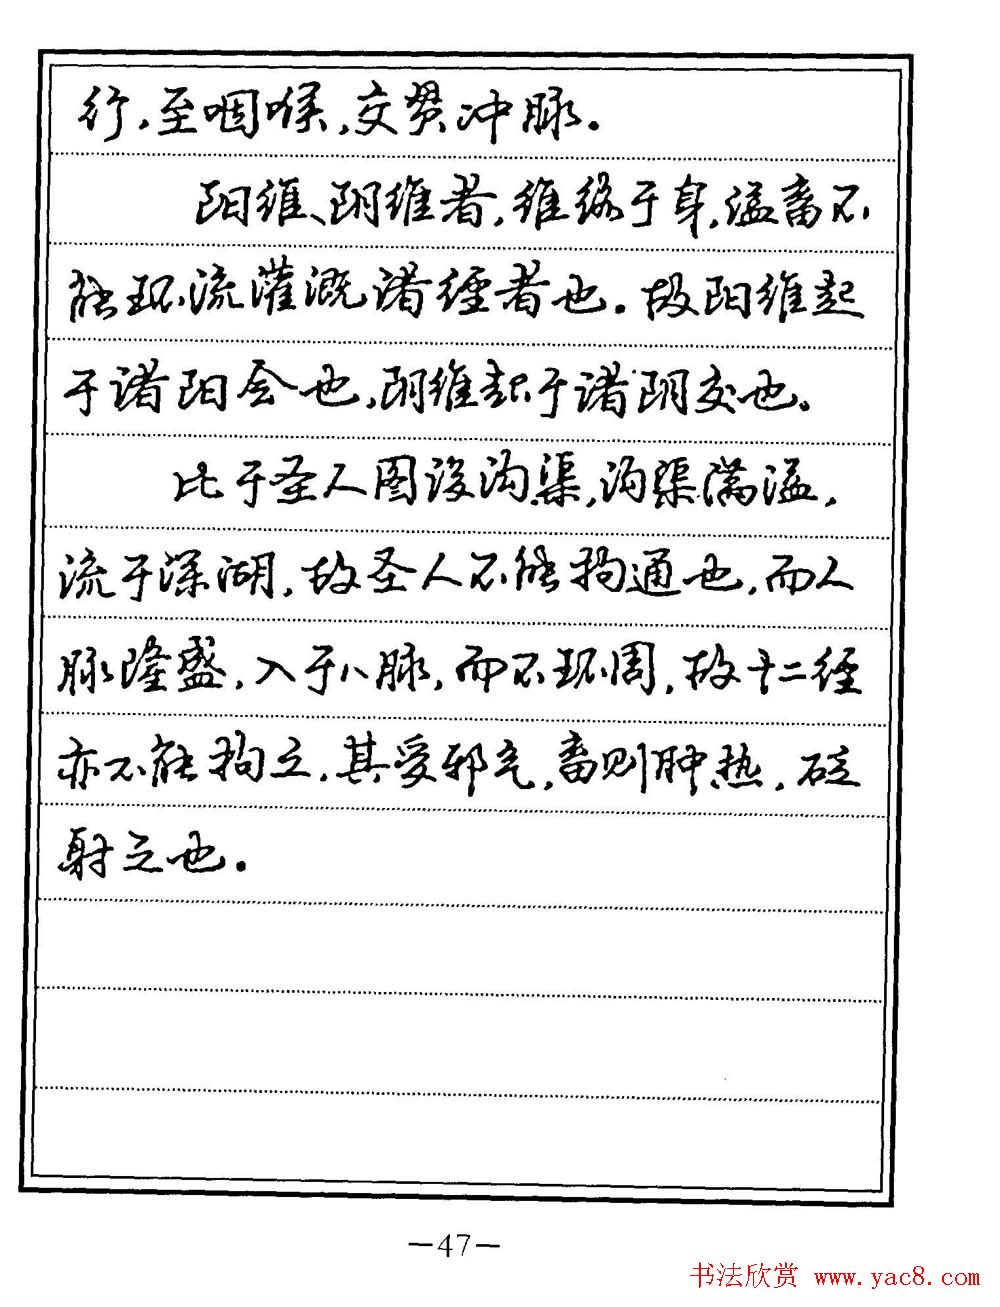 行,至咽喉,交贯冲脉。
阳维、阴维者,维络于身,溢畜不
能环流灌溉诸经者也。故阳维起
于诸阳会也,阴维起于诸阴交也。
比于圣人图设沟渠,沟渠满溢,
流于深湖,故圣人不能拘通也,而人
脉隆盛,入于八脉,而不环周,故十二经
亦不能拘之,其受邪气,畜则肿热,砭
射之也。
—47—
书法欣赏 www.yac8.com